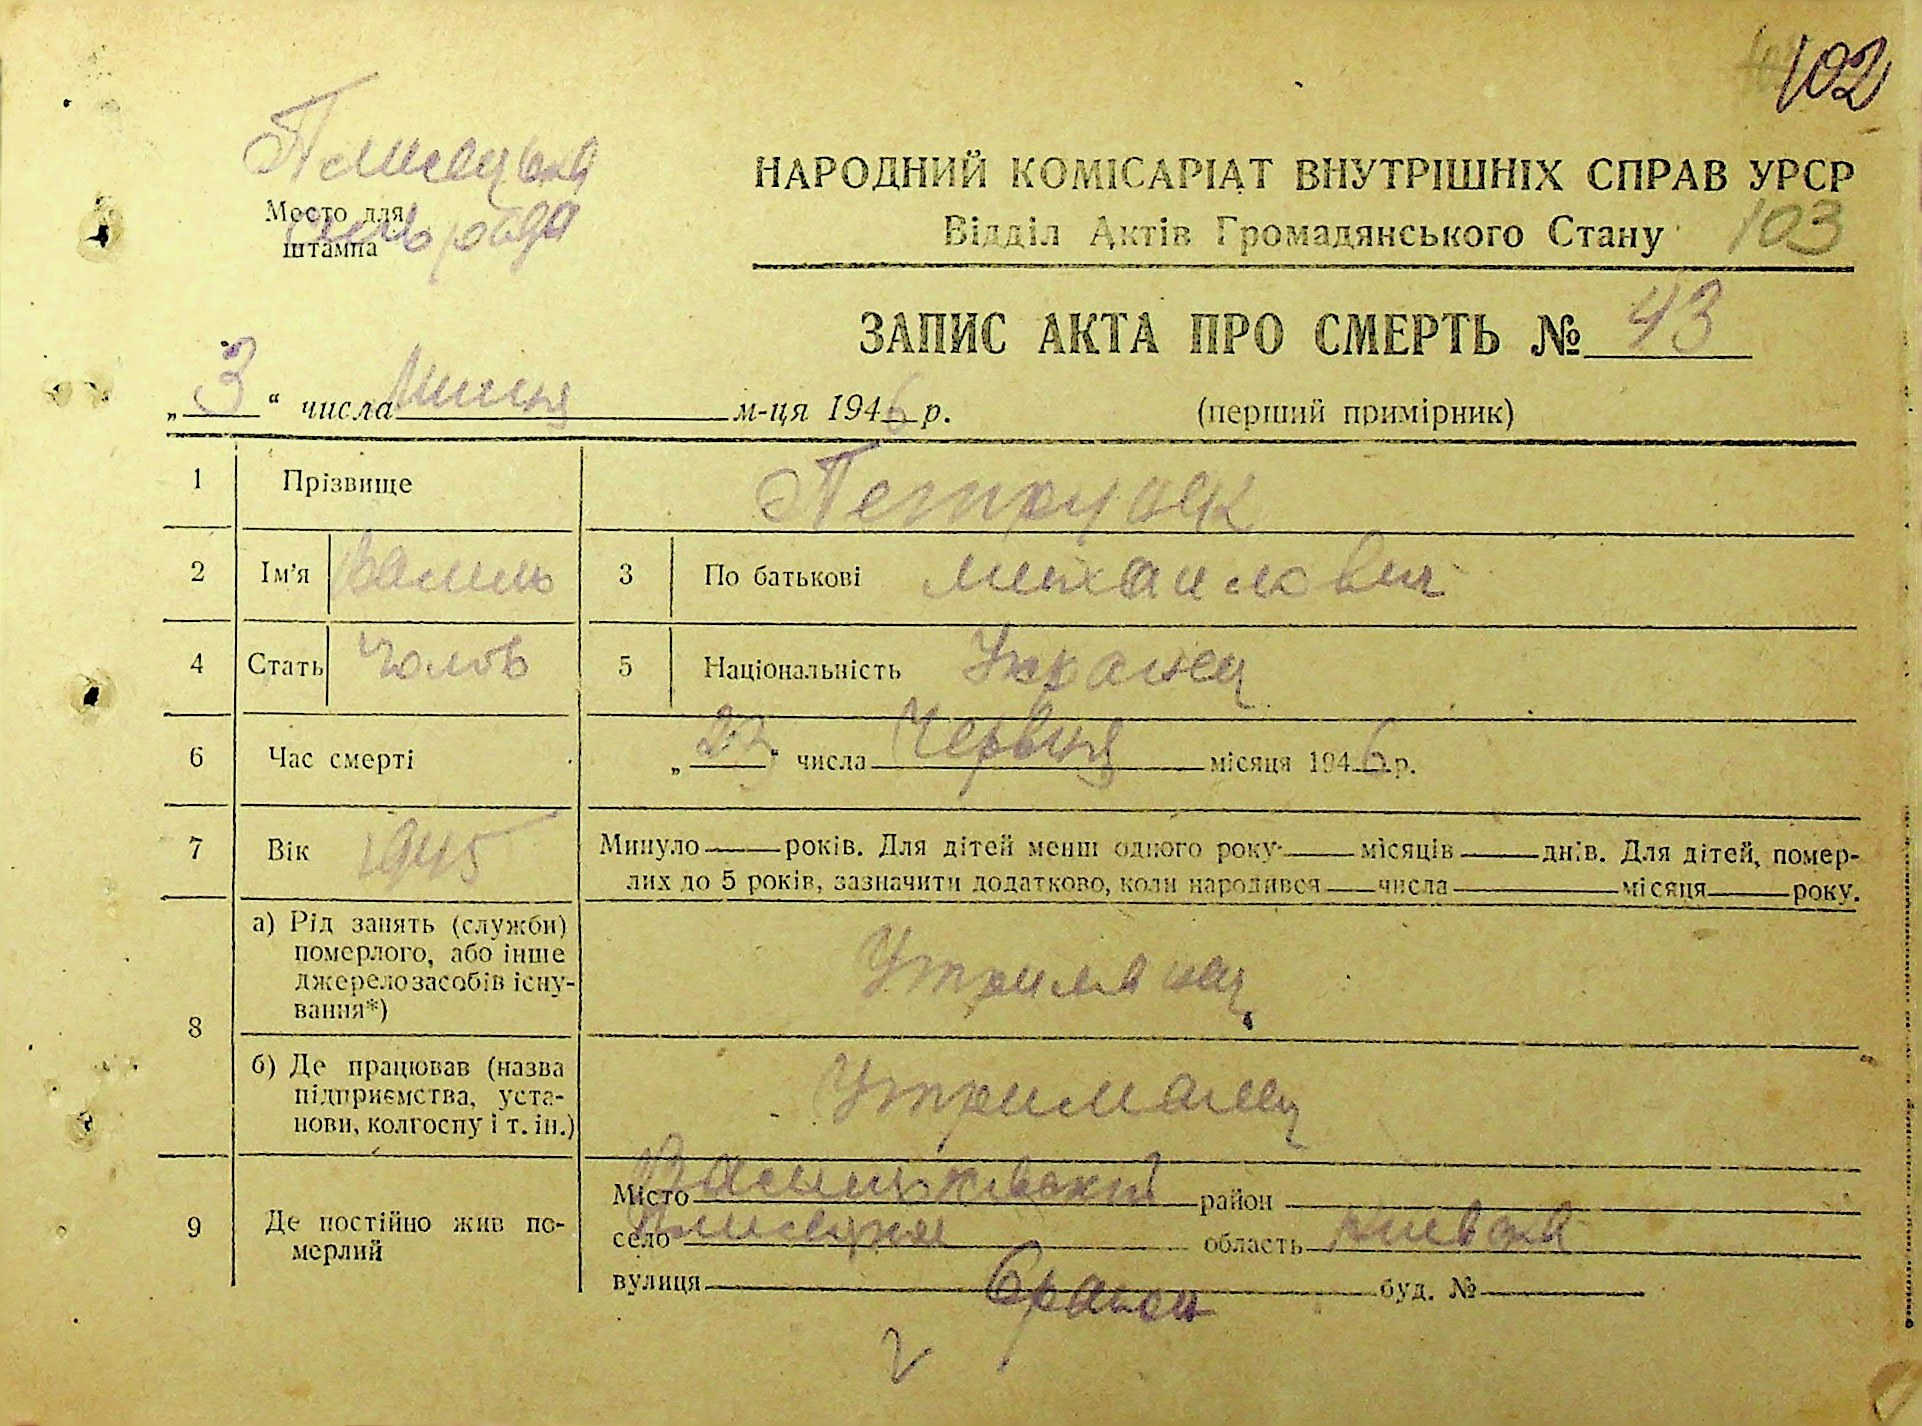 102
Плисецька
Место для
штампа
сільрада
НАРОДНИЙ КОМІСАРІАТ ВНУТРІШНІХ СПРАВ УРСР
Відділ Актів Громадянського Стану
103
ЗАПИС АКТА ПРО СМЕРТЬ № 43
„ 3 “ числа Липня м-ця 1946 р. (перший примірник)
1 Прізвище
2 Ім'я Василь 3 По батькові Михаилович
4 Стать Чолов 5 Національність Украінец
6 Час смерті „ 23 “ числа Червня місяця 1946 р.
7 Вік 1945 Минуло — років. Для дітей менш одного року — місяців — днів. Для дітей, помер-
лих до 5 років, зазначити додатково, коли народився — числа — місяця — року.
8 а) Рід занять (служби)
померлого, або інше
джерело засобів існу-
вання*)
Утриманец
б) Де працював (назва
підприємства, уста-
нови, колгоспу і т. ін.)
Утриманец
9 Де постійно жив по-
мерлий
Місто Васильківський район
село Плисецке область Киевска
вулиця буд. №